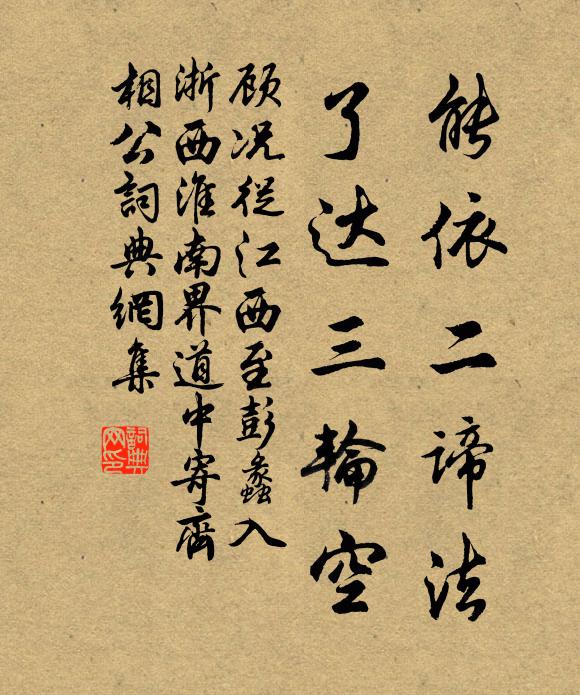 能依二諦法
了达三輪空
顾况從江西至彭蠡入
浙西淮南界道中寄齊
相公詞典網集
詞典
网印